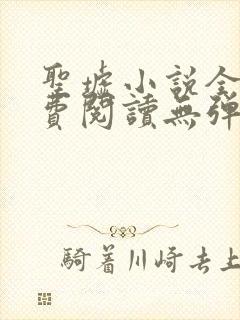 聖墟小説全
費閱讀無彈
騎着川崎去上